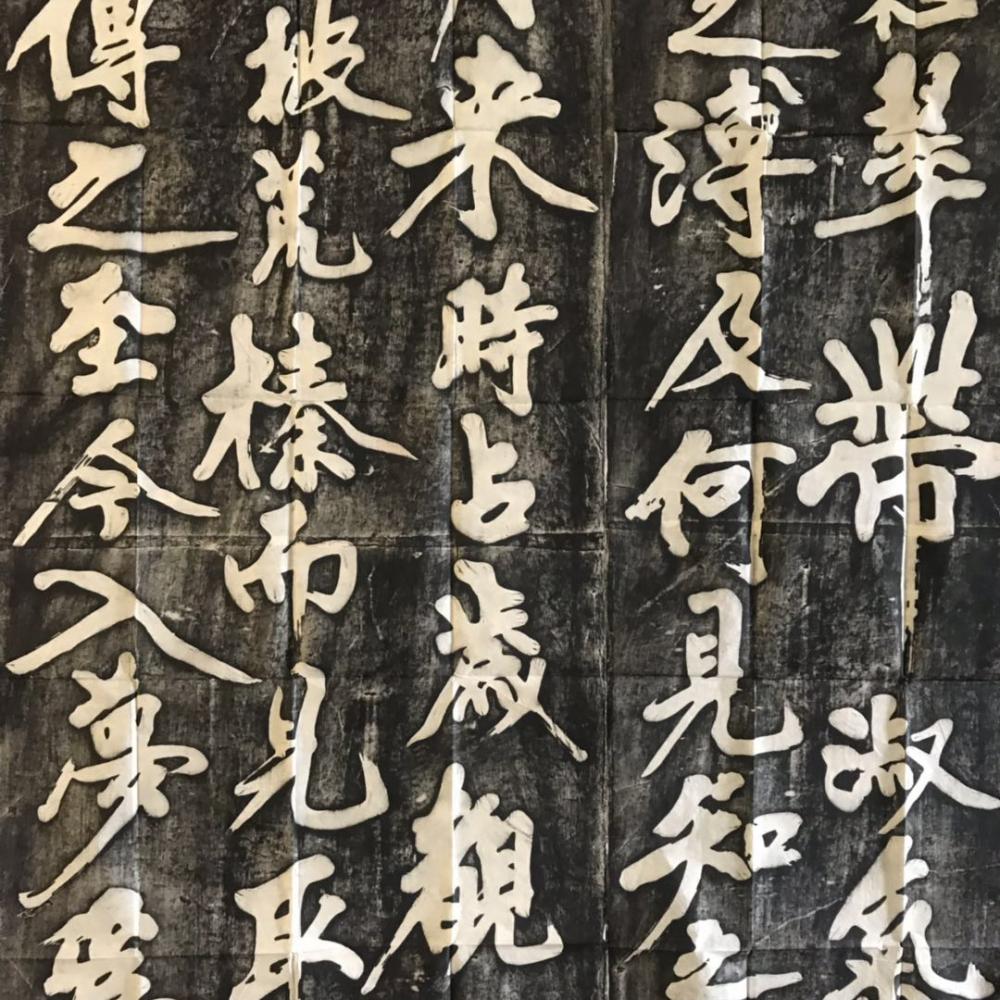 帶淑氣
之溥及何見知之
来時占歲觀
披荒榛而見取
傳之至今入夢